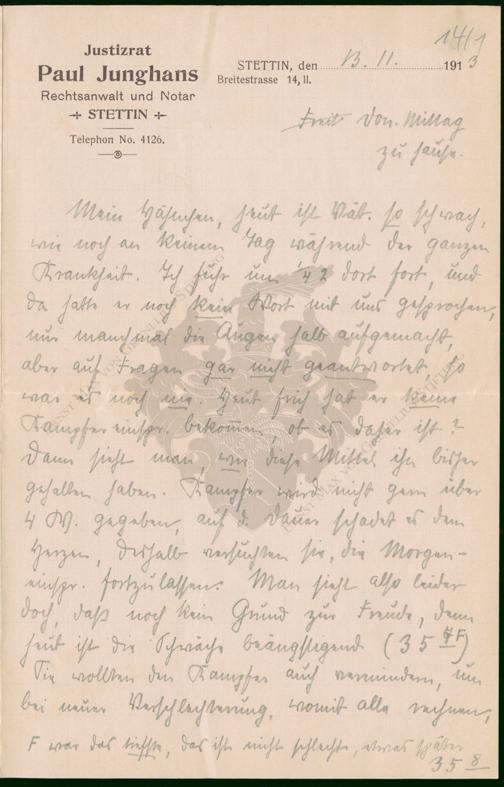 14/1
Justizrat
Paul Junghans
Rechtsanwalt und Notar
STETTIN
Telephon No. 4126.
STETTIN, den 13. 11. 1913
Breitestrasse 14, II.
Freit Don. Mittag
zu Hause.
Mein Hänschen, heut ist Vat. so schwach,
wie noch an keinem Tag während der ganzen
Krankheit. Ich fuhr um 1/4 2 dort fort, und
da hatte er noch kein Wort mit uns gesprochen,
nur manchmal die Augen halb aufgemacht,
aber auf Fragen gar nicht geantwortet, so
war es noch nie. Heut früh hat er keine
Kampfereinspr. bekommen, ob es daher ist?
Dann sieht man, wie diese Mittel ihn bisher
gehalten haben. Kampfer wird nicht gern über
4 W. gegeben, auf d. Dauer schadet es dem
Herzen, deshalb versuchten sie, die Morgen-
einspr. fortzulassen. Man sieht also leider
doch, daß noch kein Grund zur Freude, denn
heut ist die Schwäche beängstigend (35
Sie wollten den Kampfer auch vermindern, um
bei neuer Verschlechterung, womit alle rechnen,
F war das tiefste, das ist nicht schlecht, etwas später
35 8